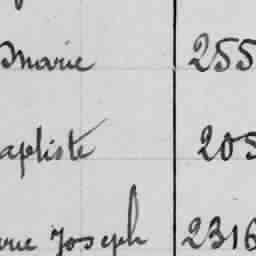 Marie 255
aptiste 205
rre Joseph 2316